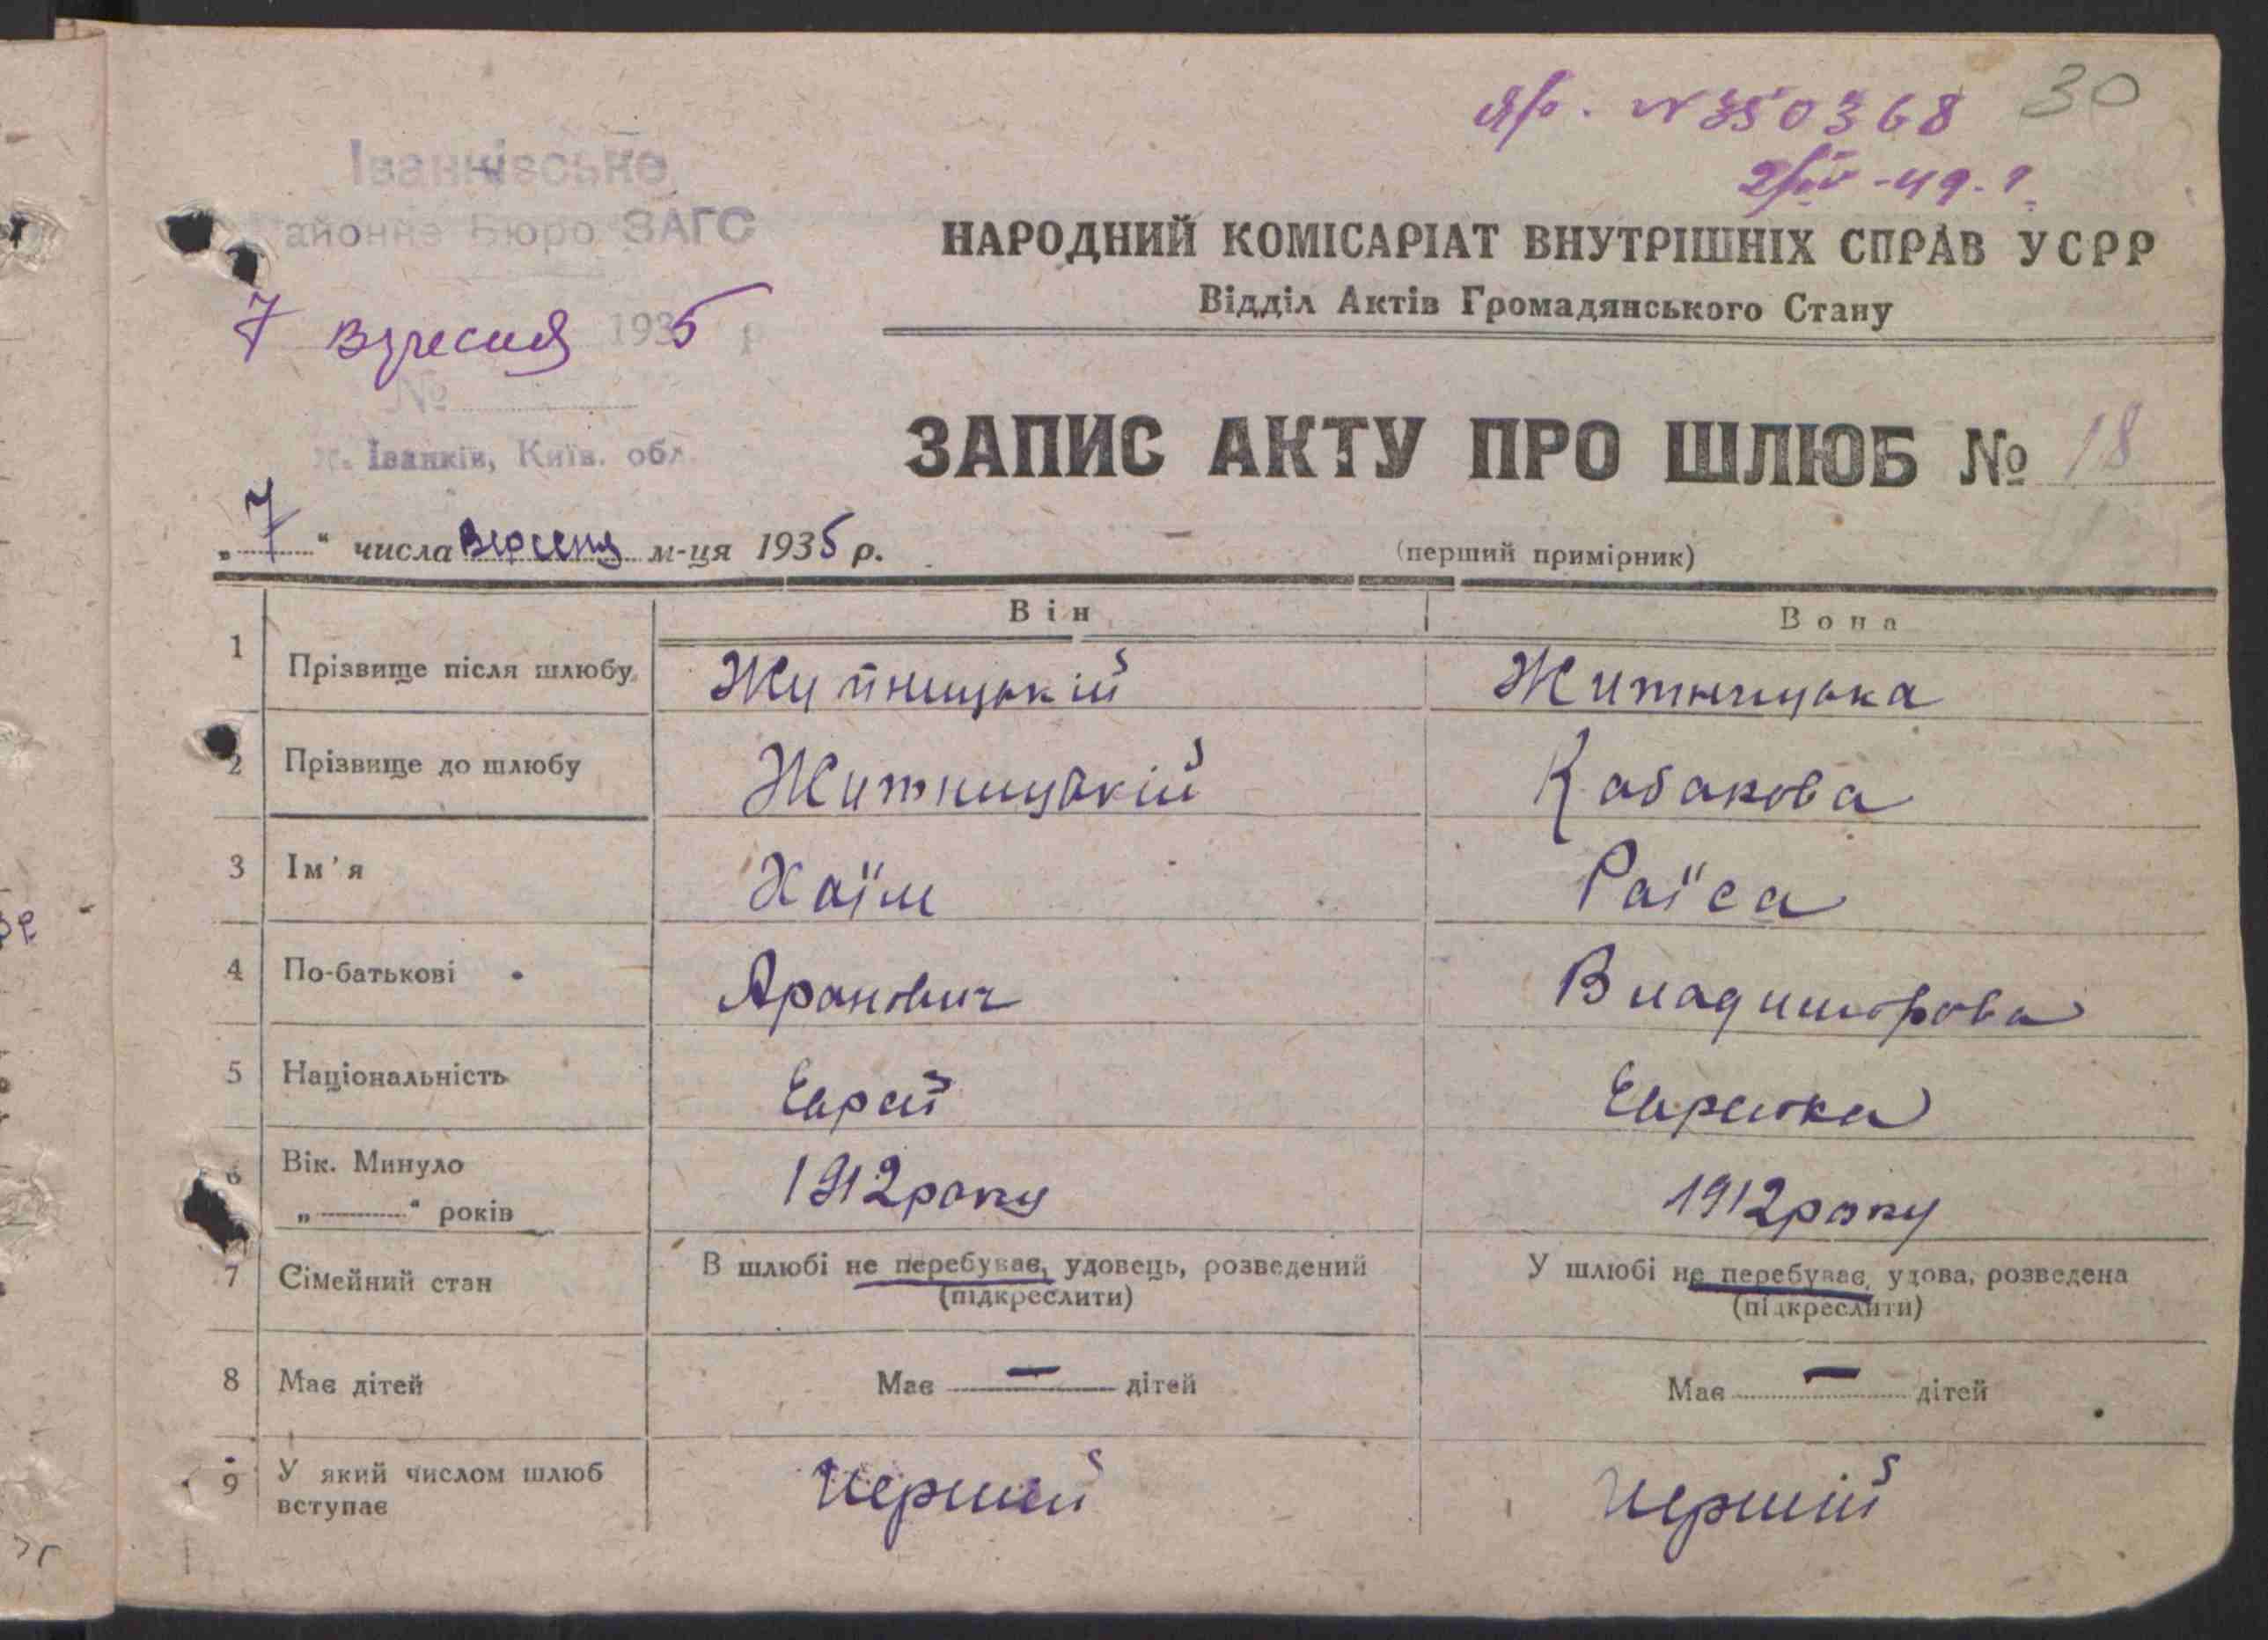 30
№ 350368
-49 г.
Іванківське
айонне Бюро ЗАГС
7 Вересня 1935 р
№
м. Іванків, Київ. обл.
НАРОДНИЙ КОМІСАРІАТ ВНУТРІШНІХ СПРАВ УСРР
Відділ Актів Громадянського Стану
ЗАПИС АКТУ ПРО ШЛЮБ № 18
„7“ числа Вересня м-ця 1935 р.
(перший примірник)
Він Вона
1 Прізвище після шлюбу Житницькій Житницька
2 Прізвище до шлюбу Житницькій Кабакова
3 Ім'я Хаїм Раїса
4 По-батькові Аранович Владимирова
5 Національність Еврей Еврейка
6 Вік. Минуло
„ “ років 1912 року 1912 року
7 Сімейний стан В шлюбі не перебуває, удовець, розведений У шлюбі не перебуває, удова, розведена
(підкреслити) (підкреслити)
8 Має дітей Має — дітей Має — дітей
9 У який числом шлюб
вступає Перший Першій